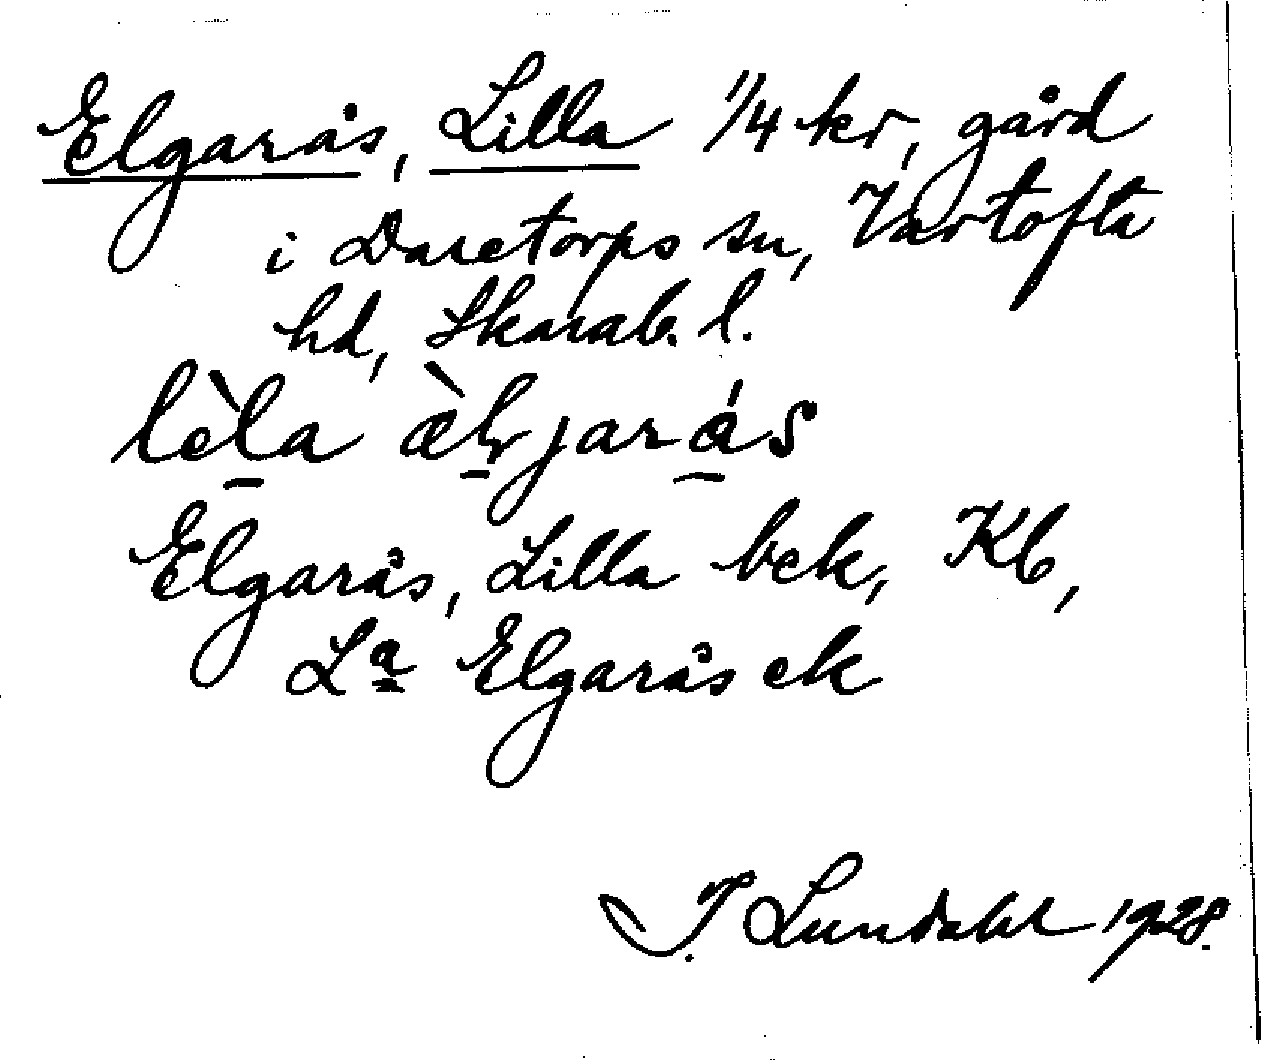 Elgarås, Lilla 1/4 kr, gård
i Daretorps sn, Vartofta
hd, Skarab. l.
lèla æ̀ljarás
Elgarås, Lilla bek, Kb,
Lª Elgarås ek
I. Lundahl 1928.